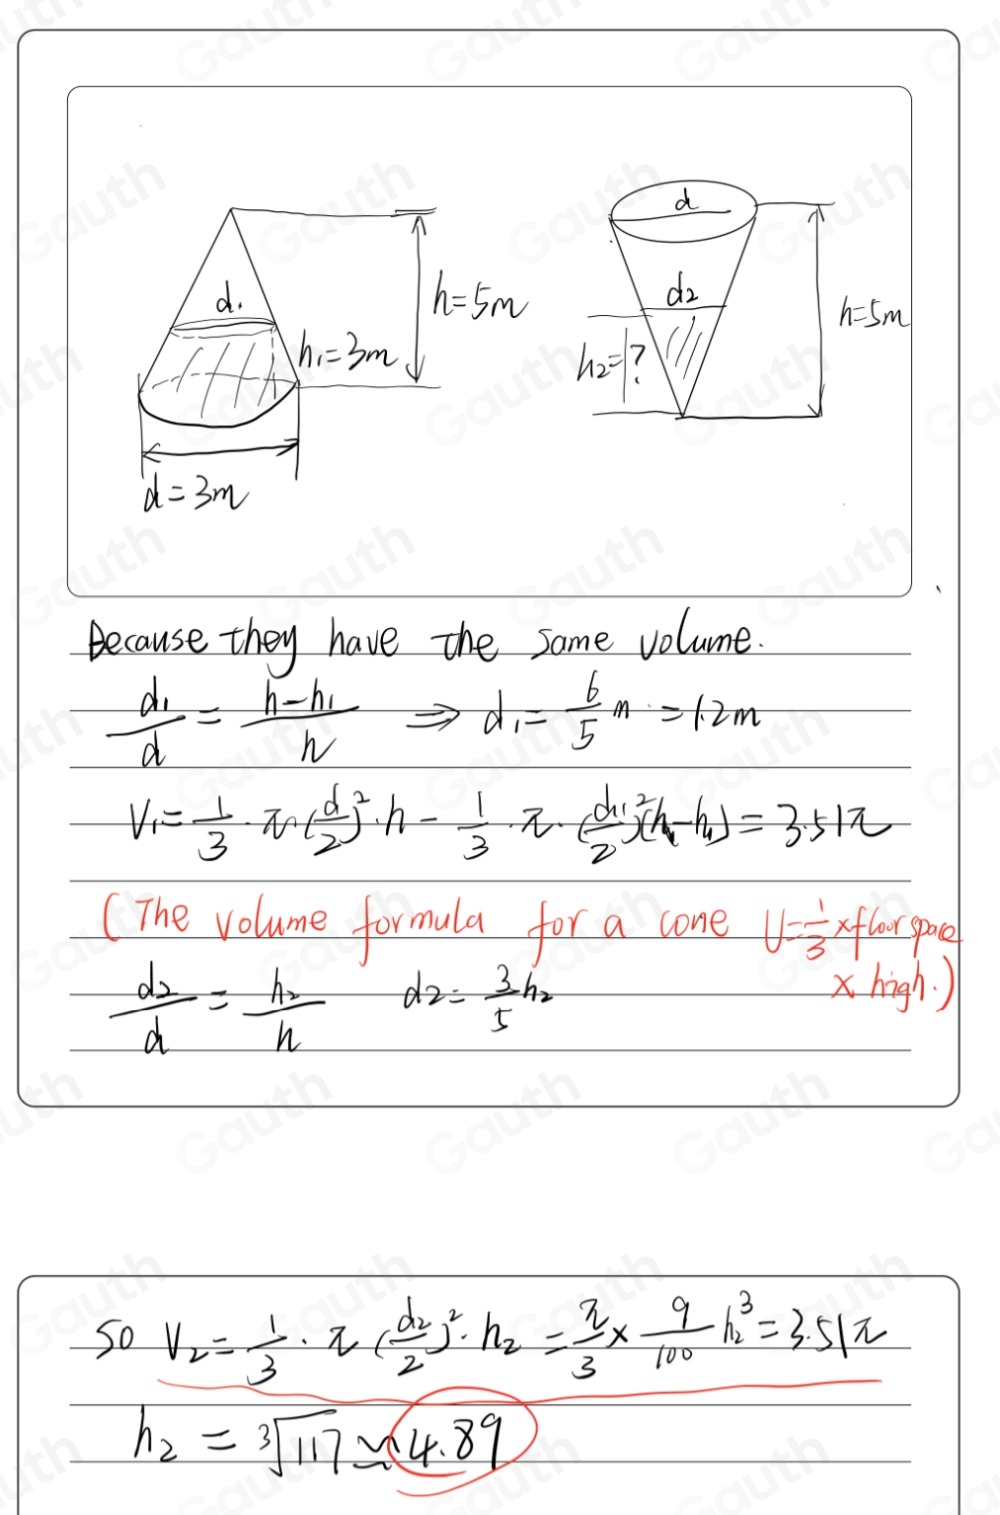 d₁
h=5m
h₁=3m
d=3m
d
d₂
h=5m
h₂=?
Because they have the same volume.
d₁/d = (h-h₁)/h ⇒ d₁ = 6/5 m = 1.2m
V₁ = 1/3 · π · (d/2)² · h - 1/3 · π · (d₁/2)² (h-h₁) = 3.51π
(The volume formula for a cone V = 1/3 × floor space × high.)
d₂/d = h₂/h d₂ = 3/5 h₂
So V₂ = 1/3 · π (d₂/2)² · h₂ = π/3 × 9/100 h₂³ = 3.51π
h₂ = ³√117 ≈ 4.89
Gauth